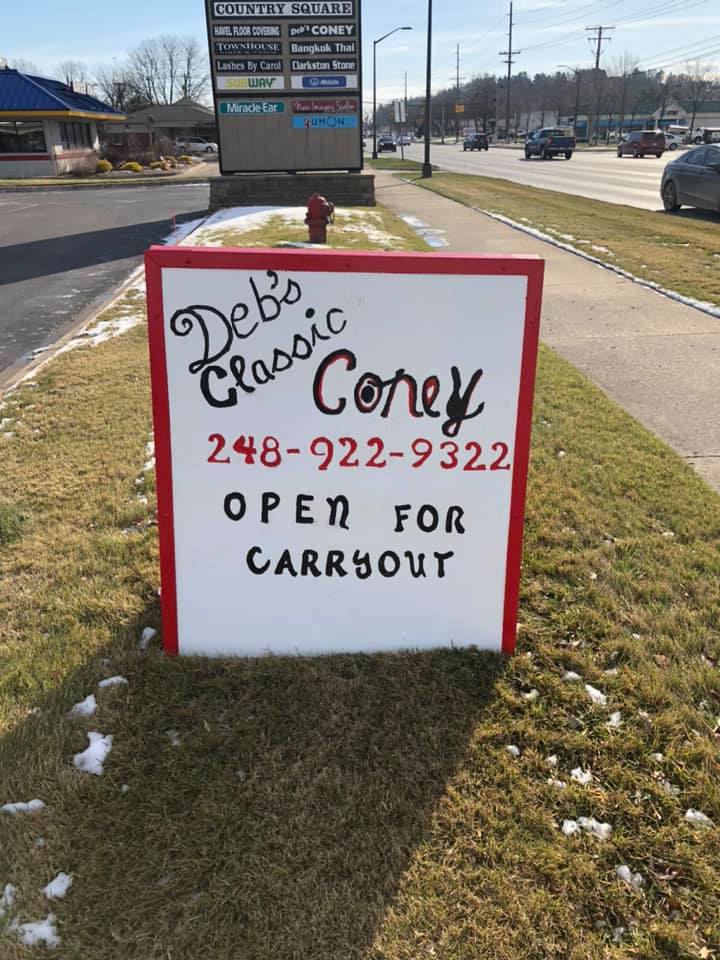 COUNTRY SQUARE
HAVEL FLOOR COVERING
Deb's CONEY
TOWNHOUSE
Bangkok Thai
Lashes By Carol
Clarkston Stone
SUBWAY
Allstate
Miracle-Ear
New Images Salon
YUMON
Deb's
Classic
Coney
248-922-9322
OPEN FOR
CARRYOUT